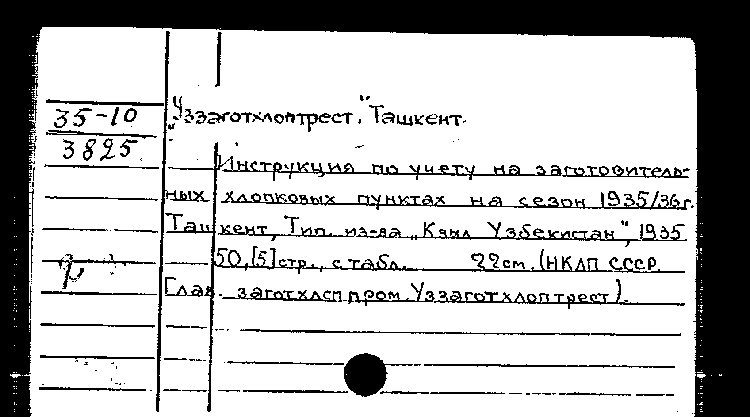 35-10
3825
"Уззаготхлоптрест," Ташкент.
Инструкция по учету на заготовитель-
ных хлопковых пунктах на сезон 1935/36г.
Ташкент, Тип. из-ва „Кзыл Узбекистан", 1935
50,[5]стр., с табл. 22см. (НКЛП СССР.
Глав. заготхлоппром. Уззаготхлоптрест).